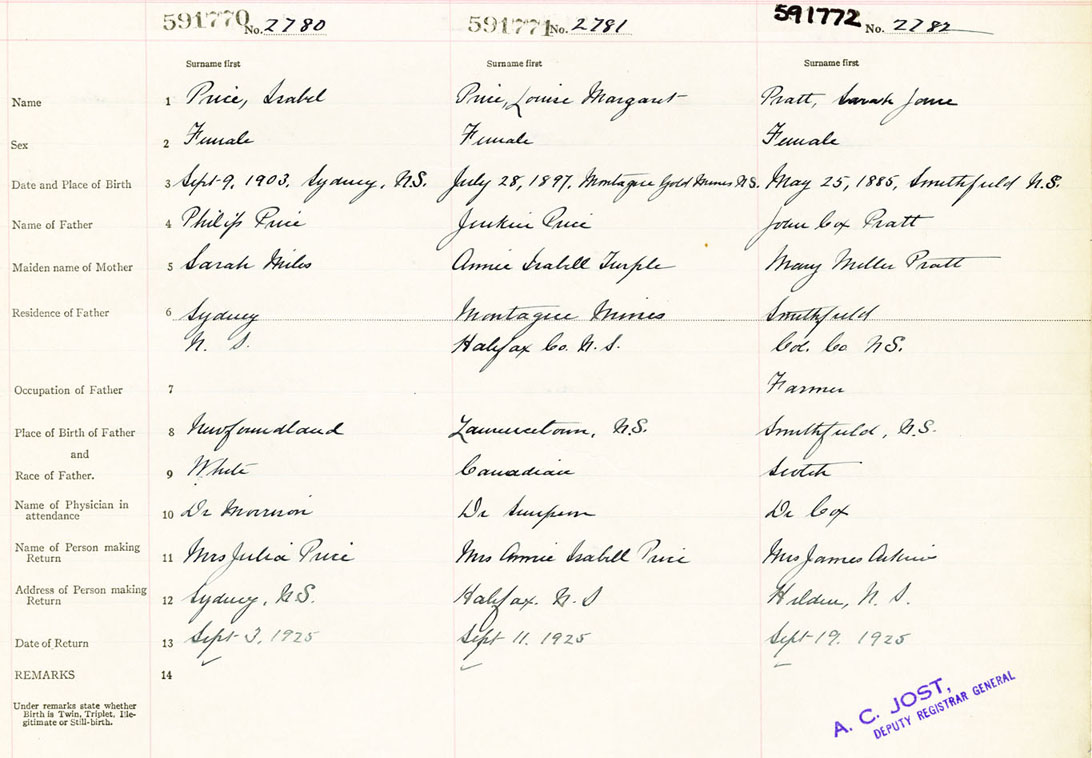 591770 No. 2780 591771 No. 2781 591772 No. 2782
Surname first Surname first Surname first
Name 1 Price, Isabel Price, Louise Margaret Pratt, Sarah Jane
Sex 2 Female Female Female
Date and Place of Birth 3 Sept 9, 1903, Sydney, N.S. July 28, 1897, Montague Gold Mines N.S. May 25, 1885, Smithfield N.S.
Name of Father 4 Philip Price Jenkin Price John Cox Pratt
Maiden name of Mother 5 Sarah Miles Annie Isabell Turple Mary Miller Pratt
Residence of Father 6 Sydney Montague Mines Smithfield
N. S. Halifax Co. N. S. Col. Co N.S.
Occupation of Father 7 Farmer
Place of Birth of Father 8 Newfoundland Lawrencetown, N.S. Smithfield, N.S.
and
Race of Father. 9 White Canadian Scotch
Name of Physician in
attendance 10 Dr Morrison Dr Simpson Dr Cox
Name of Person making
Return 11 Mrs Julia Price Mrs Annie Isabell Price Mrs James
Address of Person making
Return 12 Sydney, N.S. Halifax. N. S Hilden, N. S.
Date of Return 13 Sept 3, 1925 Sept 11. 1925 Sept 19. 1925
REMARKS 14
Under remarks state whether
Birth is Twin, Triplet, Ille-
gitimate or Still-birth.
A. C. JOST,
DEPUTY REGISTRAR GENERAL